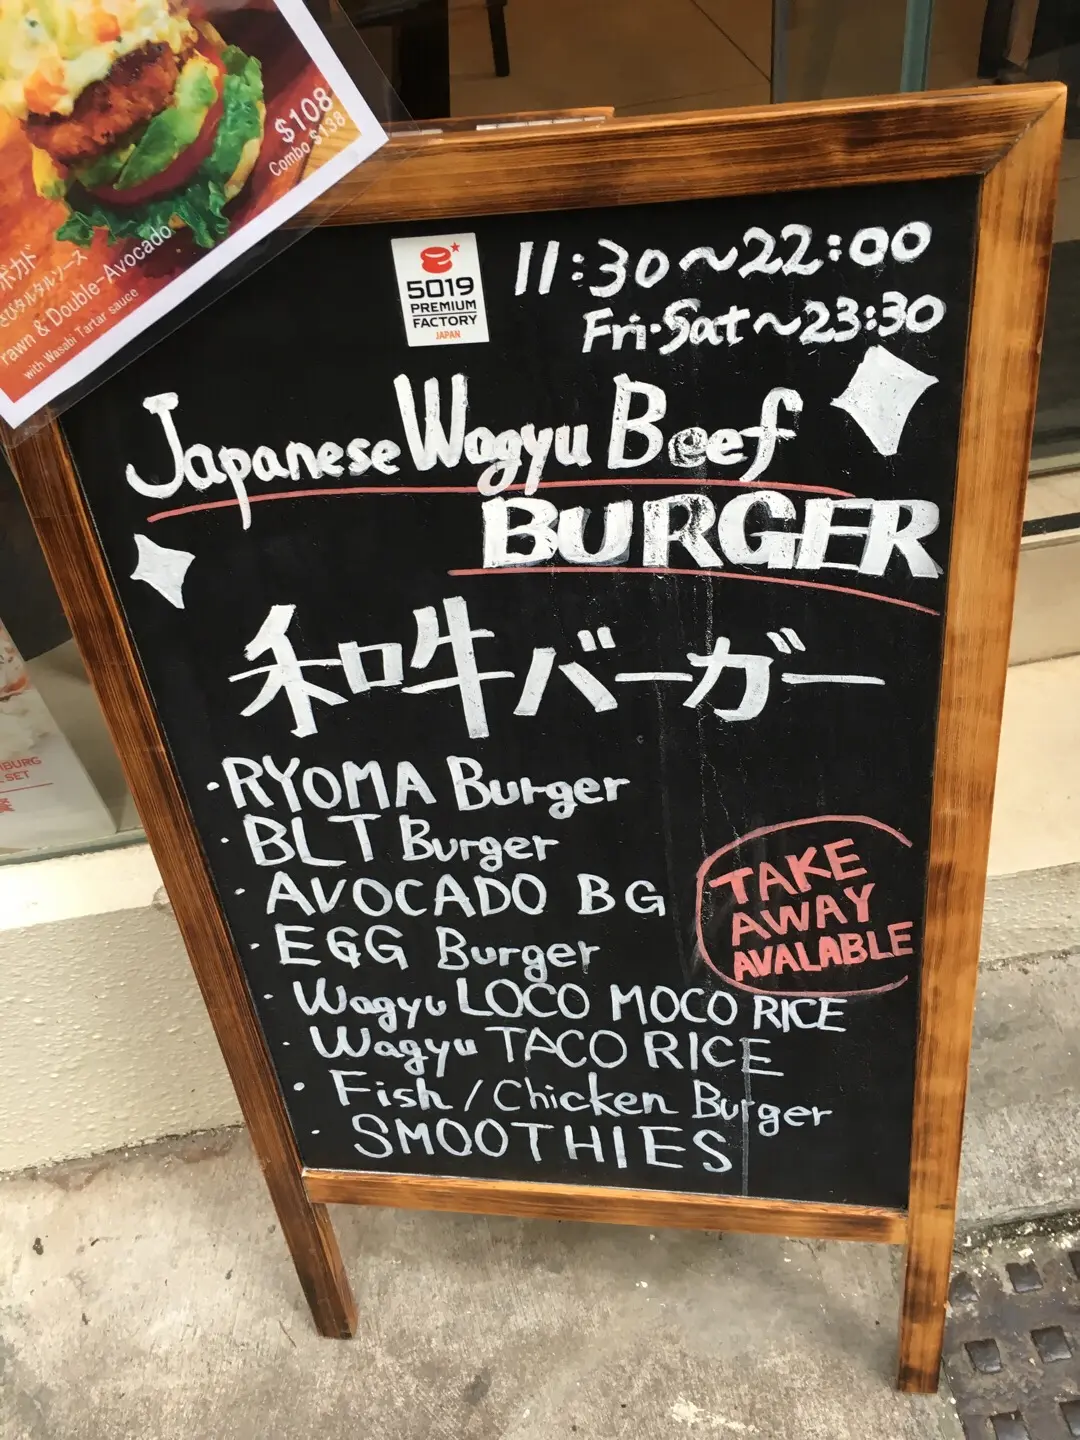 $108
Combo $138
ボカド
さびタルタルソース
rawn & Double-Avocado
with Wasabi Tartar sauce
5019
PREMIUM
FACTORY
JAPAN
11:30~22:00
Fri・Sat~23:30
Japanese Wagyu Beef
BURGER
和牛バーガー
・RYOMA Burger
・BLT Burger
・AVOCADO BG
・EGG Burger
・Wagyu LOCO MOCO RICE
・Wagyu TACO RICE
・Fish / Chicken Burger
・SMOOTHIES
TAKE
AWAY
AVALABLE
BURG
SET